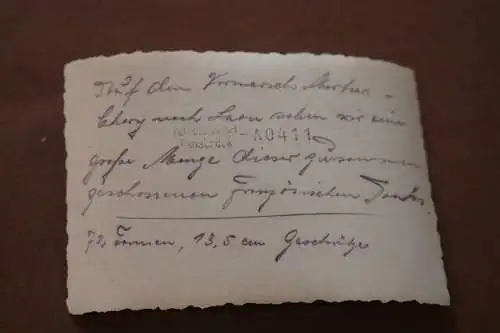 Auf dem Vormarsch Mortier-
Chery nach Laon sahen wir eine
A0411
große Menge dieser zusammen
geschossenen Französischen Tanks.
72 Tonnen, 13,5 cm Geschütze